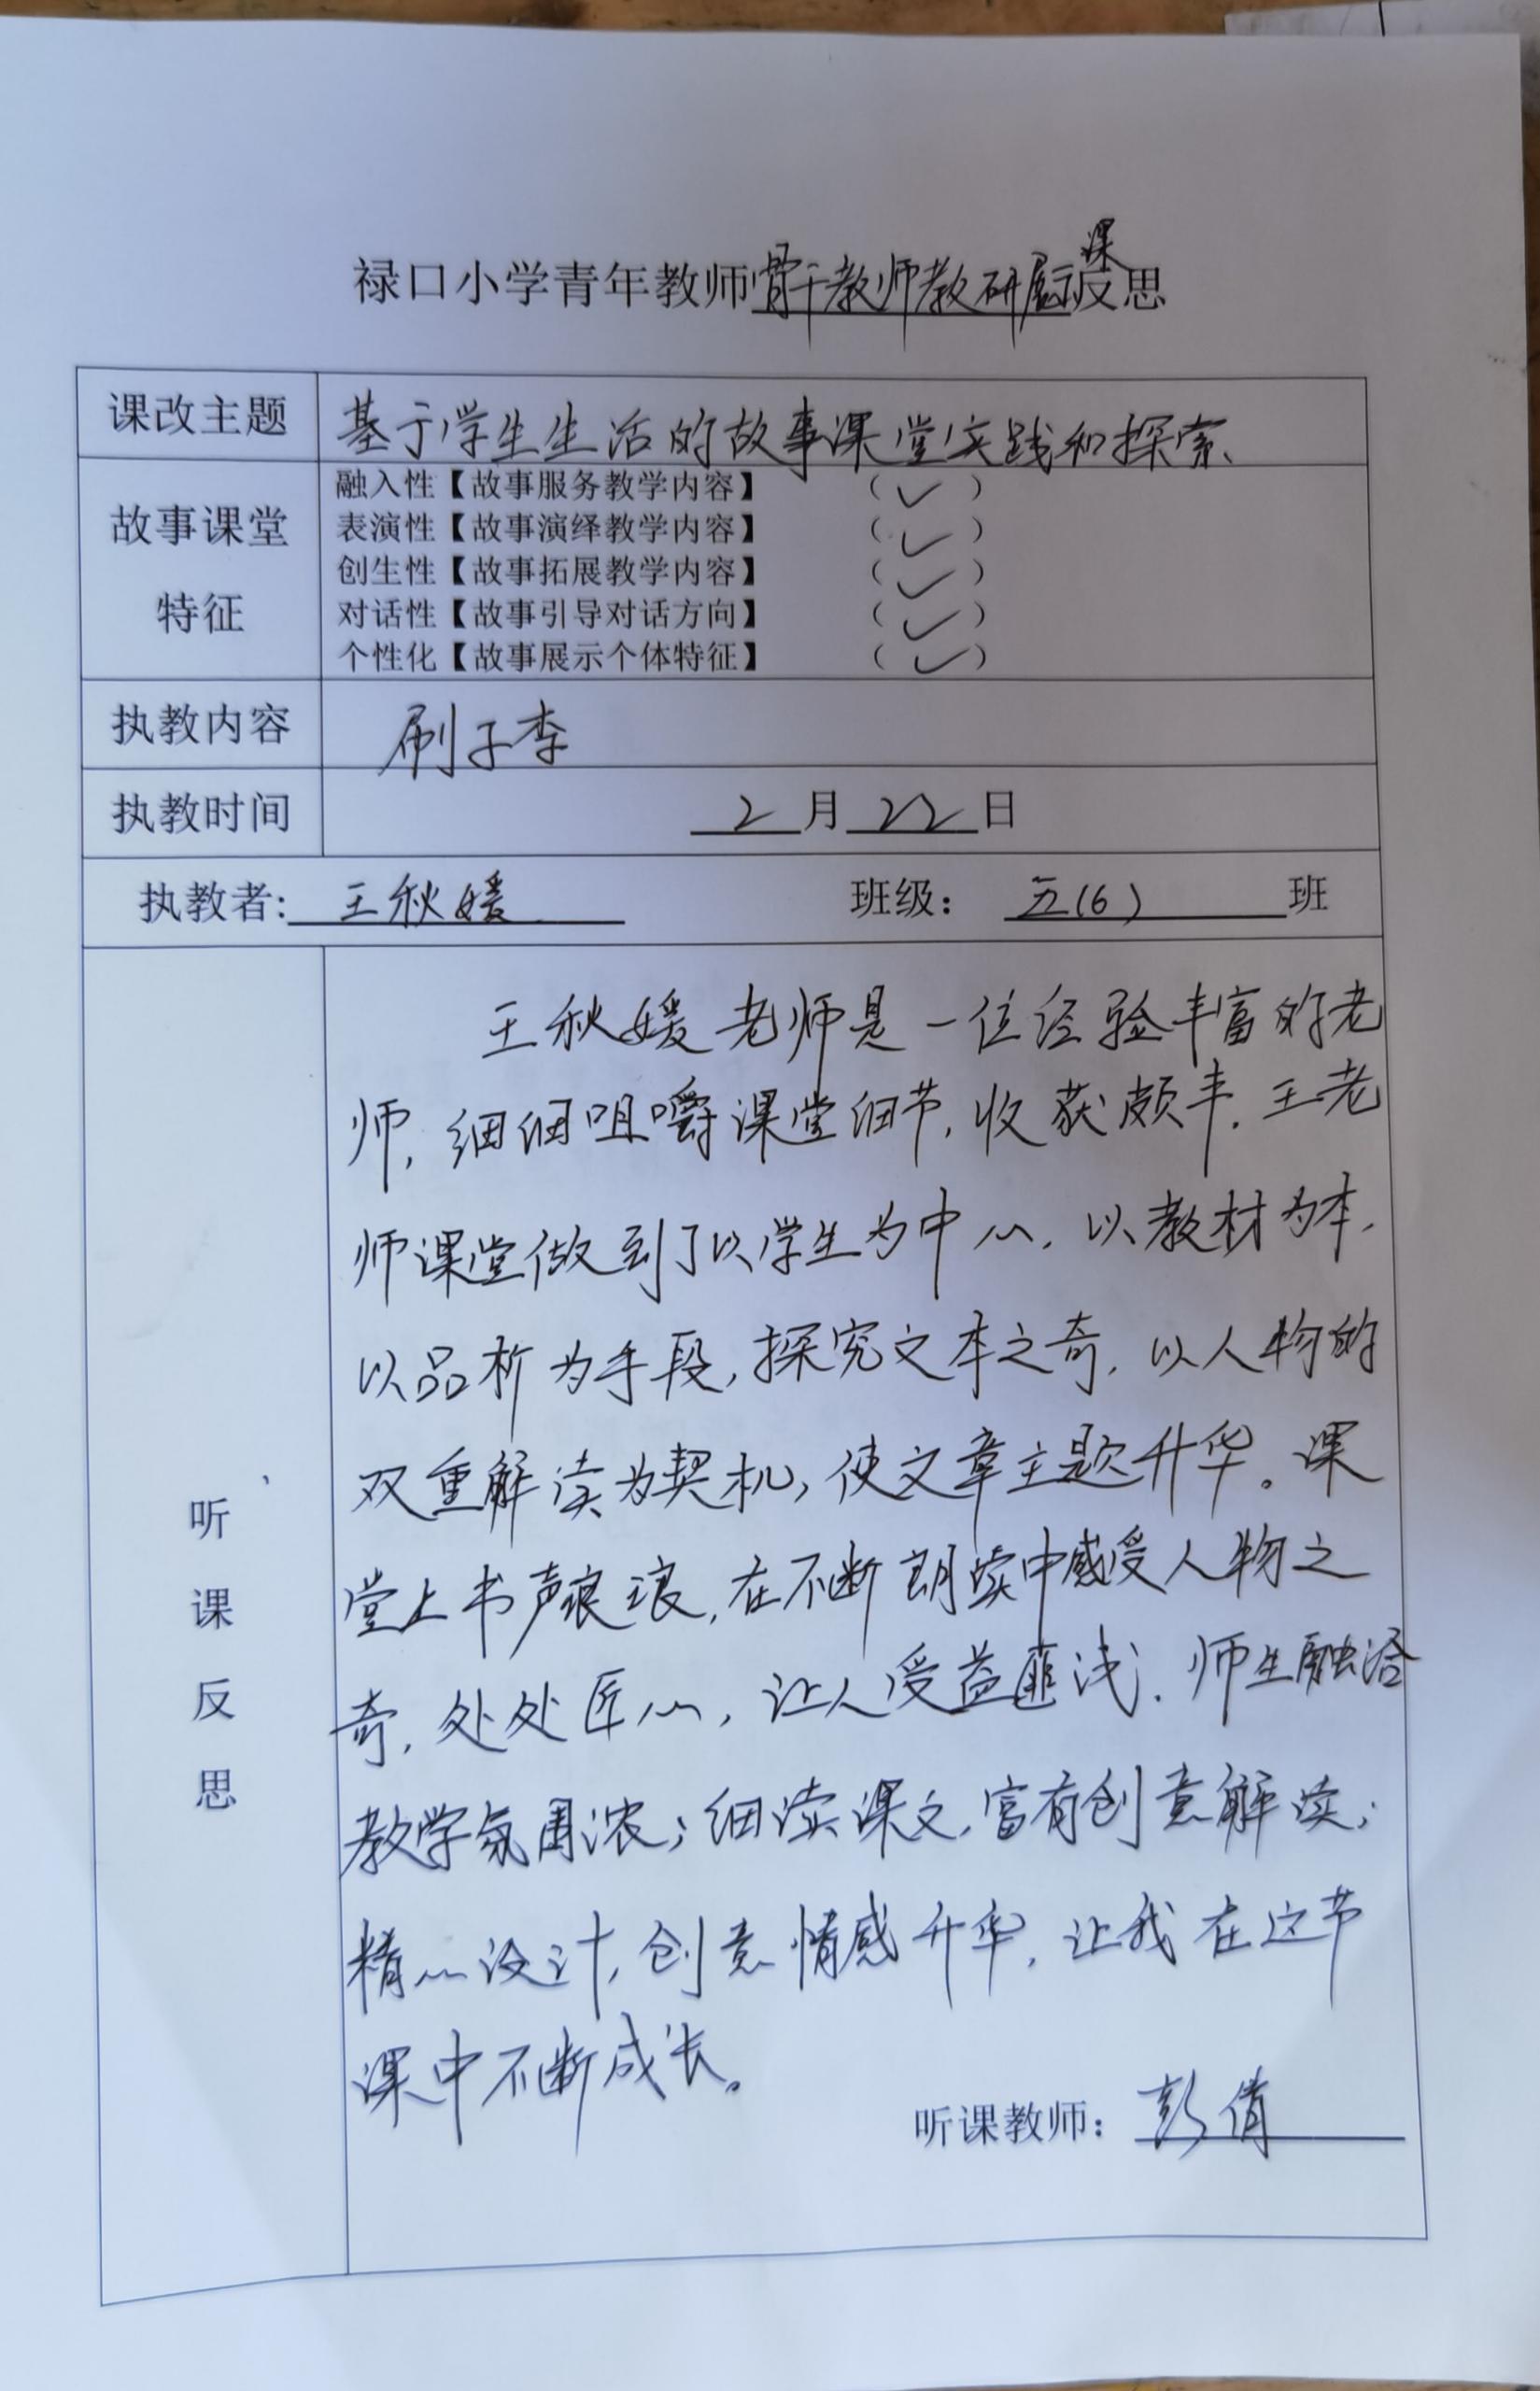 禄口小学青年教师骨干教师教研展示课反思
课改主题 基于学生生活的故事课堂实践和探索
故事课堂特征
融入性【故事服务教学内容】 （✓）
表演性【故事演绎教学内容】 （✓）
创生性【故事拓展教学内容】 （✓）
对话性【故事引导对话方向】 （✓）
个性化【故事展示个体特征】 （✓）
执教内容 刷子李
执教时间 2月22日
执教者：王秋媛 班级：五（6）班
听课反思
王秋媛老师是一位经验丰富的老
师，细细咀嚼课堂细节，收获颇丰．王老
师课堂做到了以学生为中心，以教材为本，
以品析为手段，探究文本之奇，以人物的
双重解读为契机，使文章主题升华。课
堂上书声琅琅，在不断朗读中感受人物之
奇，处处匠心，让人受益匪浅．师生融洽
教学氛围浓；细读课文，富有创意解读；
精心设计，创意情感升华，让我在这节
课中不断成长。
听课教师：彭倩